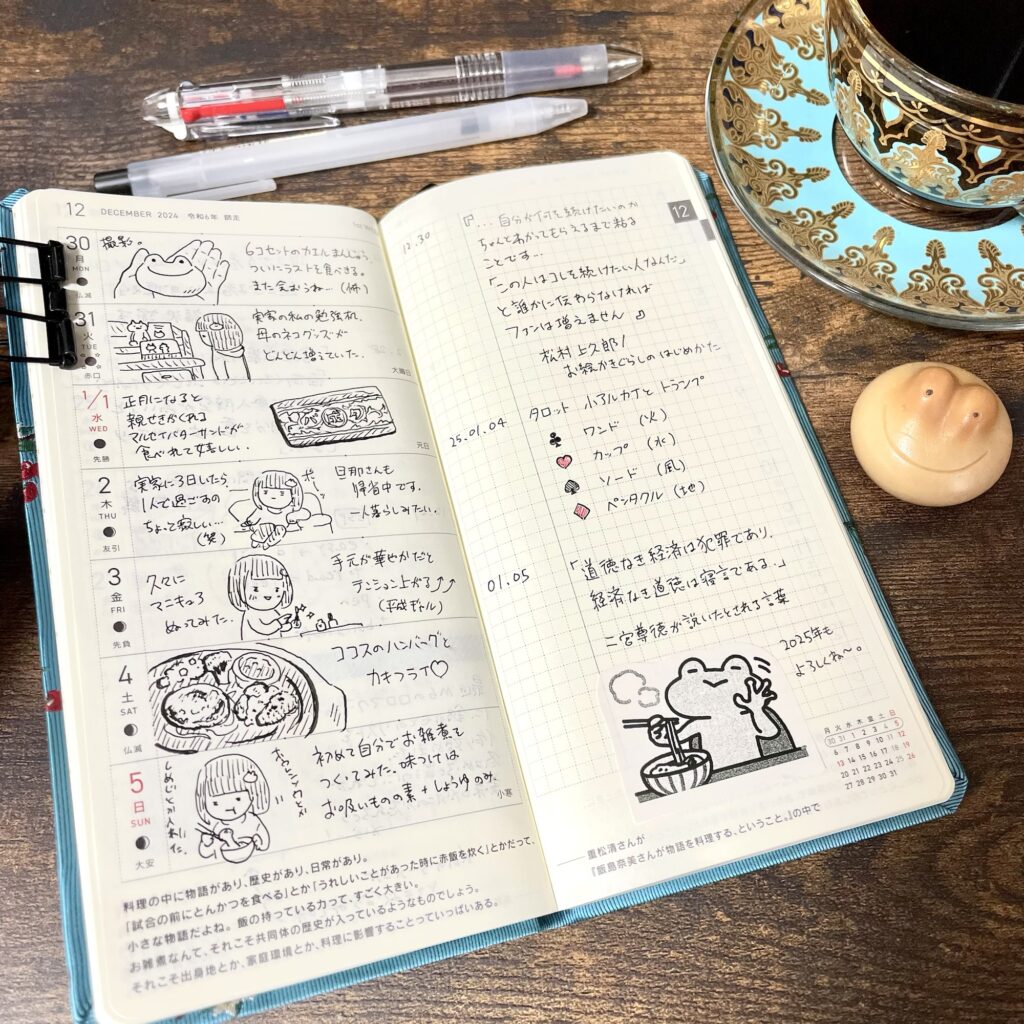 12 DECEMBER 2024 令和6年 師走
30
月
MON
仏滅
撮影。
6コセットのカエルまんじゅう。
ついにラストを食べきる。
また会おうね…
31
火
TUE
赤口
実家の私の勉強机。
母のネコグッズが
どんどん増えていた。
大晦日
1/1
水
WED
先勝
正月になると
親せきがくれる
マルセイバターサンドが
食べれて嬉しい…
元日
2
木
THU
友引
実家に3日いたら
1人で過ごすの
ちょって寂しい…
(笑)
旦那さんも
帰省中です。
一人暮らしみたい。
3
金
FRI
先負
久々に
マニキュア
ぬってみた。
手元が華やかだと
テンション上がる⤴⤴
(平成ギャル)
4
土
SAT
仏滅
ココスのハンバーグと
カキフライ♡
5
日
SUN
大安
しめじとか入れた。
初めて自分でお雑煮を
つくってみた。味つけは
お吸いものの素+しょうゆのみ。
小寒
料理の中に物語があり、歴史があり、日常があり。
「試合の前にとんかつを食べる」とか「うれしいことがあった時に赤飯を炊く」とかだって、
小さな物語だよね。飯の持っている力って、すごく大きい。
お雑煮なんて、それこそ共同体の歴史が入っているようなものでしょう。
それこそ出身地とか、家庭環境とか、料理に影響することっていっぱいある。
12
12.30
『…自分が何を続けたいのか
ちゃんとわかってもらえるまで粘る
ことです…
「この人はコレを続けたい人なんだ」
と誰かに伝わらなければ
ファンは増えません』
松村上久郎/
お絵かきぐらしのはじめかた
25.01.04
タロット 小アルカナとトランプ
♣ ワンド (火)
♥ カップ (水)
♠ ソード (風)
♦ ペンタクル (地)
01.05
「道徳なき経済は犯罪であり、
経済なき道徳は寝言である。」
二宮尊徳が説いたとされる言葉
2025年も
よろしくね〜。
月 火 水 木 金 土 日
30 31 1 2 3 4 5
6 7 8 9 10 11 12
13 14 15 16 17 18 19
20 21 22 23 24 25 26
27 28 29 30 31
――重松清さんが
『飯島奈美さんが物語を料理する、ということ。』の中で